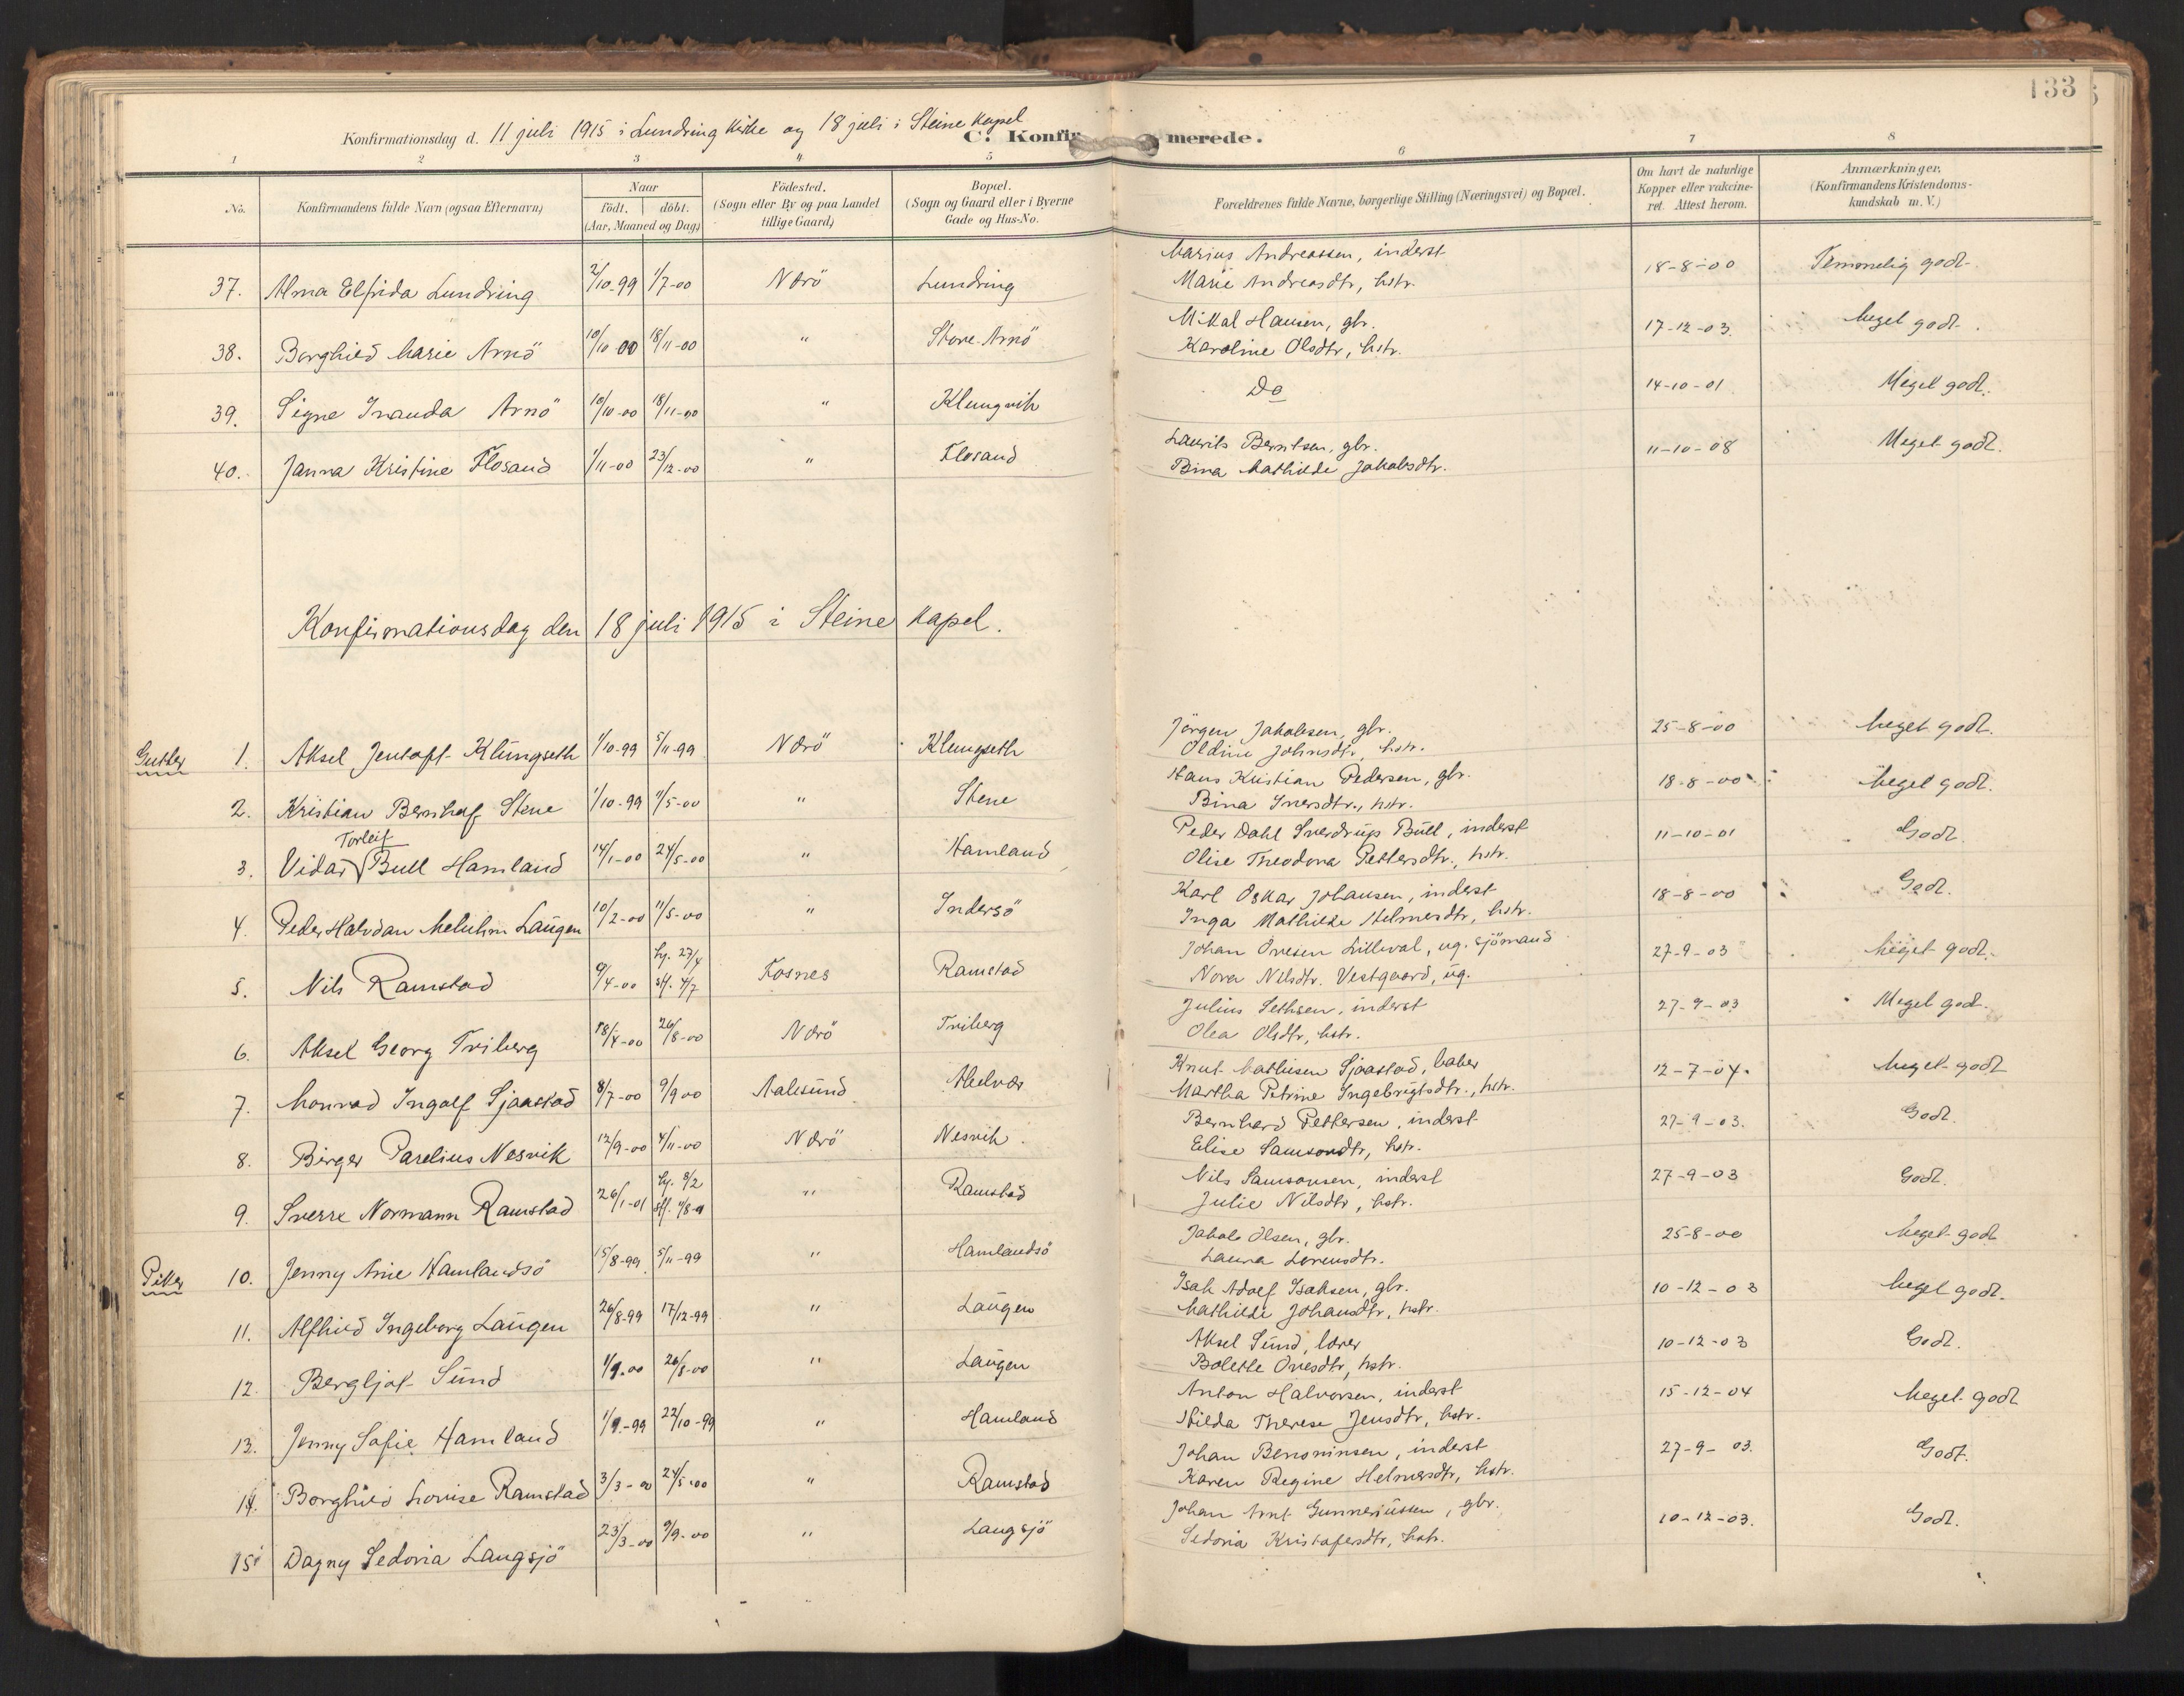 133
Konfirmationsdag d. 11 juli 1915 i Lundring kirke og 18 juli i Steine kapel
C. Konfirmerede.
1 2 3 4 5 6 7 8
No. Konfirmandens fulde Navn (ogsaa Efternavn) Naar födt. döbt. (Aar, Maaned og Dag) Födested. (Sogn eller By og paa Landet tillige Gaard) Bopæl. (Sogn og Gaard eller i Byerne Gade og Hus-No. Forældrenes fulde Navne, borgerlige Stilling (Næringsvei) og Bopæl. Om havt de naturlige Kopper eller vakcineret. Attest herom. Anmærkninger. (Konfirmandens Kristendomskundskab m. V.)
37. Alma Elfrida Lundring 2/10-99 1/7-00 Nærö Lundring Marius Andreassen, inderst 18-8-00 Temmelig godt.
Marie Andreasdtr, hstr.
38. Borghild Marie Arnö 10/10-00 18/11-00 " Store Arnö Mikal Hansen, gbr. 17-12-03. Meget godt.
Karoline Olsdtr, hstr.
39. Signe Iranda Arnö 10/10-00 18/11-00 " Klungvik Do 14-10-01 Meget godt.
40. Janna Kristine Flosand 1/11-00 23/12-00 " Flosand Laurits Berntsen, gbr. 11-10-08 Meget godt.
Bina Mathilde Jakobsdtr.
Konfirmationsdag den 18 juli 1915 i Steine kapel.
Gutter 1. Aksel Jentoft Klungseth 1/10-99 5/11-99 Nærö Klungseth Jörgen Jakobsen, gbr. 25-8-00 Meget godt.
Oldine Johnsdtr, hstr.
2. Kristian Bernhof Stene 1/10-99 1/5-00 " Stene Hans Kristian Pedersen, gbr. 18-8-00 Meget godt.
Bina Iversdtr., hstr.
3. Vidar Torleif Bull Hamland 14/1-00 24/5-00 " Hamland Peder Dahl Sverdrup Bull, inderst 11-10-01 Godt.
Olise Theodora Pettersdtr., hstr.
4. Peder Halvdan Meluhm Laugen 10/2-00 11/5-00 " Indersö Karl Oskar Johansen, inderst 18-8-00 Godt.
Inga Mathilde Helmersdtr, hstr.
5. Nils Ramstad 9/4-00 hj. 27/4 stf. 4/7 Fosnes Ramstad Johan Ovesen Lilleval, ug. sjömand 27-9-03 Meget godt.
Nora Nilsdtr. Vestgaard, ug.
6. Aksel Georg Triberg 18/4-00 26/8-00 Nærö Triberg Julius Sethsen, inderst 27-9-03 Meget godt.
Olea Olsdtr, hstr.
7. Monrad Ingolf Sjaastad 8/7-00 9/9 00 Aalesund Abelvær Knut Mathisen Sjaastad, baker 12-7-04. Meget godt
Martha Petrine Ingebrigtsdtr., hstr.
8. Birger Parelius Nesvik 12/9-00 4/11-00 Nærö Nesvik. Bernhard Pettersen, inderst 27-9-03. Godt.
Elise Samsondtr, hstr.
9. Sverre Normann Ramstad 26/1-01 hj. 8/2 stf. 4/8-01 " Ramstad Nils Samsonsen, inderst 27-9-03 Godt.
Julie Nilsdtr, hstr.
Piker 10. Jenny Arne Hamlandsö 15/8-99 5/11-99 " Hamlandsö Jakob Olsen, gbr. 25-8-00 Meget godt
Laura Lorensdtr.
11. Alfhild Ingeborg Laugen 26/8-99 17/12-99 " Laugen Isak Adolf Isaksen, gbr. 10-12-03 Meget godt.
Mathilde Johansdtr, hstr.
12. Bergljot Sund 1/9.00 26/8-00 " Laugen Aksel Sund, lærer 10-12-03 Godt.
Bolette Ovesdtr, hstr.
13. Jenny Sofie Hamland 1/9.-99 22/10-99 " Hamland Anton Halvorsen, inderst 15-12-04 Meget godt
Hilda Therese Jensdtr, hstr.
14. Borghild Lovise Ramstad 3/3-00 24/5-00 " Ramstad Johan Benoninsen, inderst 27-9-03. Godt.
Karen Regine Helmersdtr, hstr.
15 Dagny Sedonia Laugsjö 23/3-00 9/9-00 " Laugsjö Johan Arnt Gunneriussen, gbr. 10-12-03. Godt.
Sedonia Kristofersdtr, hstr.